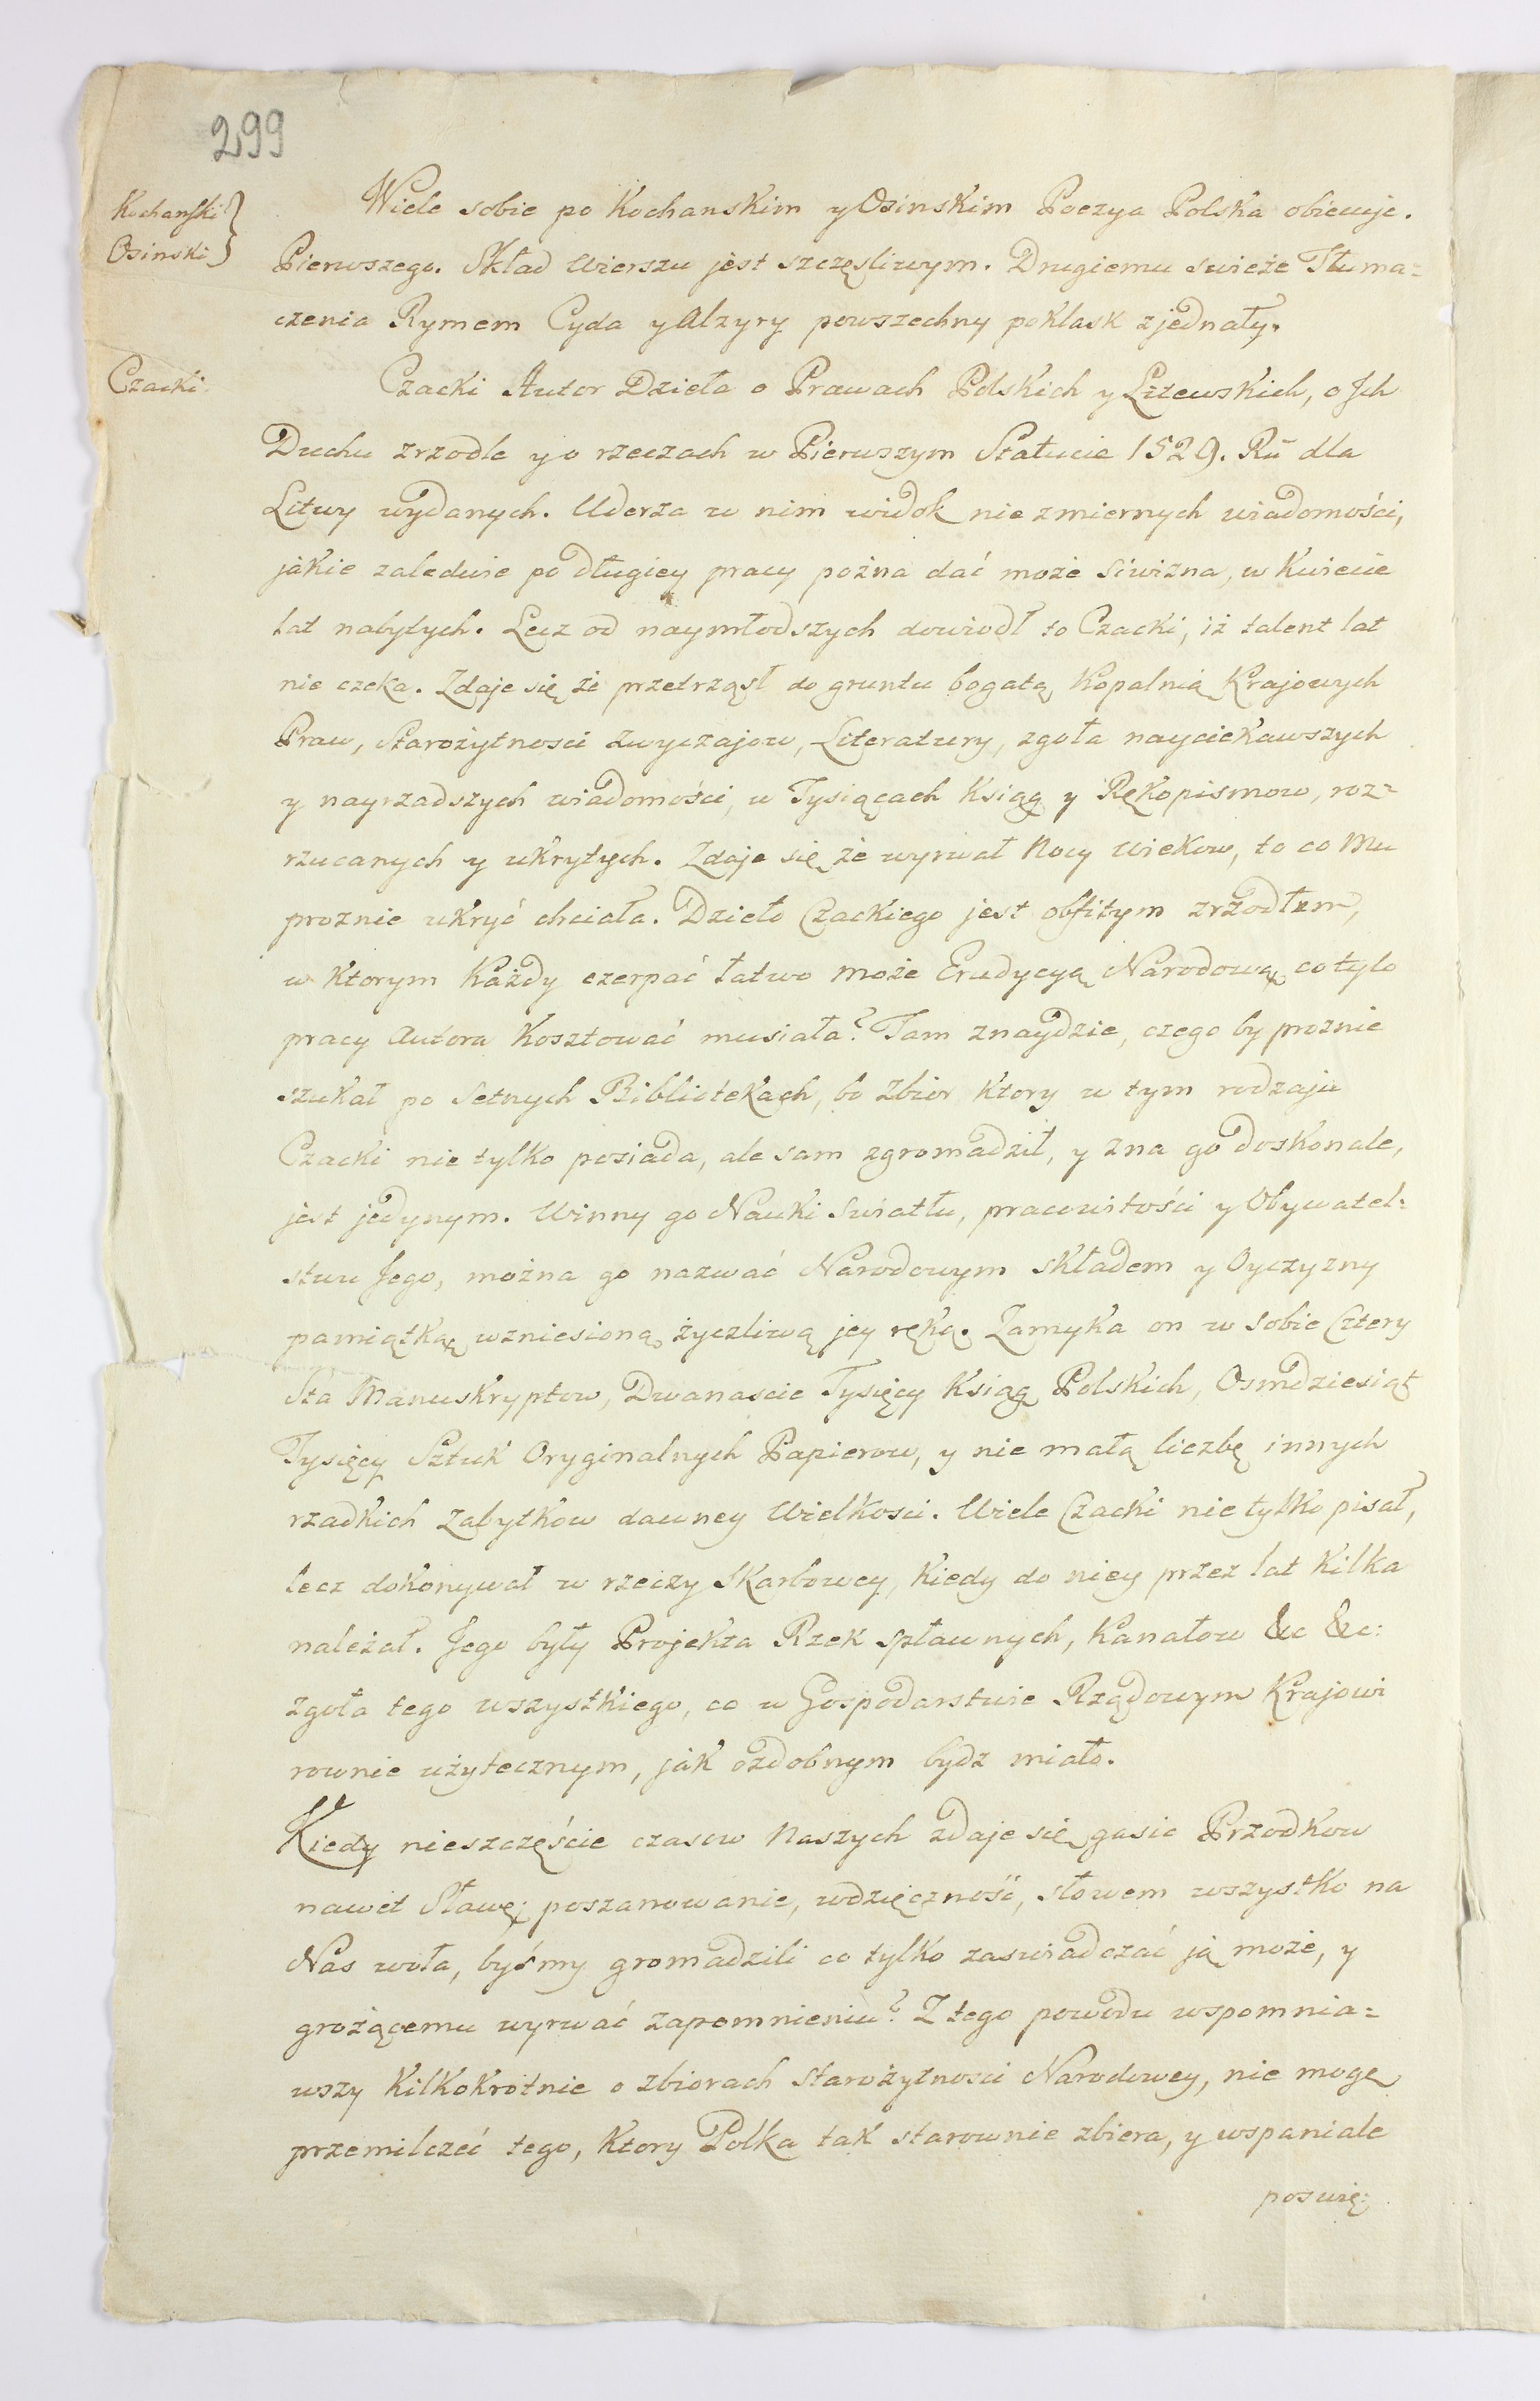 299
Kochanski
Osinski
Wiele sobie po Kochanskim y Osinskim Poezya Polska obiecuje.
Pierwszego. Skład Wierszu jest szczęsliwym. Drugiemu swieże Tłuma=
czenia Rymem Cyda y Alzyry powszechny poklask zjednały.
Czacki
Czacki Autor Dzieła o Prawach Polskich y Litewskich, o Jch
Duchu zrzodle y o rzeczach w Pierwszym Statucie 1529. Ru dla
Litwy wydanych. Uderza w nim widok niezmiernych wiadomości,
jakie zaledwie po długiey pracy pożna dać może siwizna, w Kwiecie
lat nabytych. Lecz od naymłodszych dowiodł to Czacki, iż talent lat
nie czeka. Zdaje się że przetrząsł do gruntu bogatą Kopalnią Krajowych
Praw, Starożytnosci zwyczajow, Literatury, zgoła nayciekawszych
y nayrzadszych wiadomości, w Tysiącach Ksiąg y Rękopismow, roz=
rzucanych y ukrytych. Zdaje się że wyrwał Nocy Wiekow, to co Mu
proznie ukryć chciała. Dzieło Czackiego jest obfitym zrzodłem,
w Ktorym Każdy czerpać łatwo może Erudycyą Narodową co tylo
pracy Autora Kosztować musiała? Tam znaydzie, czego by proznie
szukał po Setnych Bibliotekach, bo Zbior Ktory w tym rodzaju
Czacki nie tylko posiada, ale sam zgromadził, y zna go doskonale,
jest jedynym. Winny go Nauki Swiatłu, pracowitości y Obywatel=
stwu Jego, można go nazwać Narodowym składem y Oyczyzny
pamiątką wzniesioną życzliwą jey ręką. Zamyka on w Sobie Cztery
Sta Manuskryptow, Dwanascie Tysięcy Ksiąg Polskich, Osmdziesiąt
Tysięcy Sztuk Oryginalnych Papierow, y nie małą liczbę innych
rzadkich Zabytkow dawney Wielkosci. Wiele Czacki nie tylko pisał,
lecz dokonywał w rzeczy Skarbowey, Kiedy do niey przez lat Kilka
należał. Jego były Projekta Rzek spławnych, Kanałow &c &c:
zgoła tego wszystkiego, co w Gospodarstwie Rządowym Krajowi
rownie użytecznym, jak ozdobnym bydz miało.
Kiedy nieszczęście czasow Naszych zdaje się gasic Przodkow
nawet Sławę; poszanowanie, wdzięczność, słowem wszystko na
Nas woła, byśmy gromadzili co tylko zaswiadczać ją może, y
grożącemu wyrwać zapomnieniu? Z tego powodu wspomnia=
wszy Kilkokrotnie o zbiorach Starożytnosci Narodowey, nie mogę
przemilczeć tego, Ktory Polka tak starownie zbiera, y wspaniale
poswię: